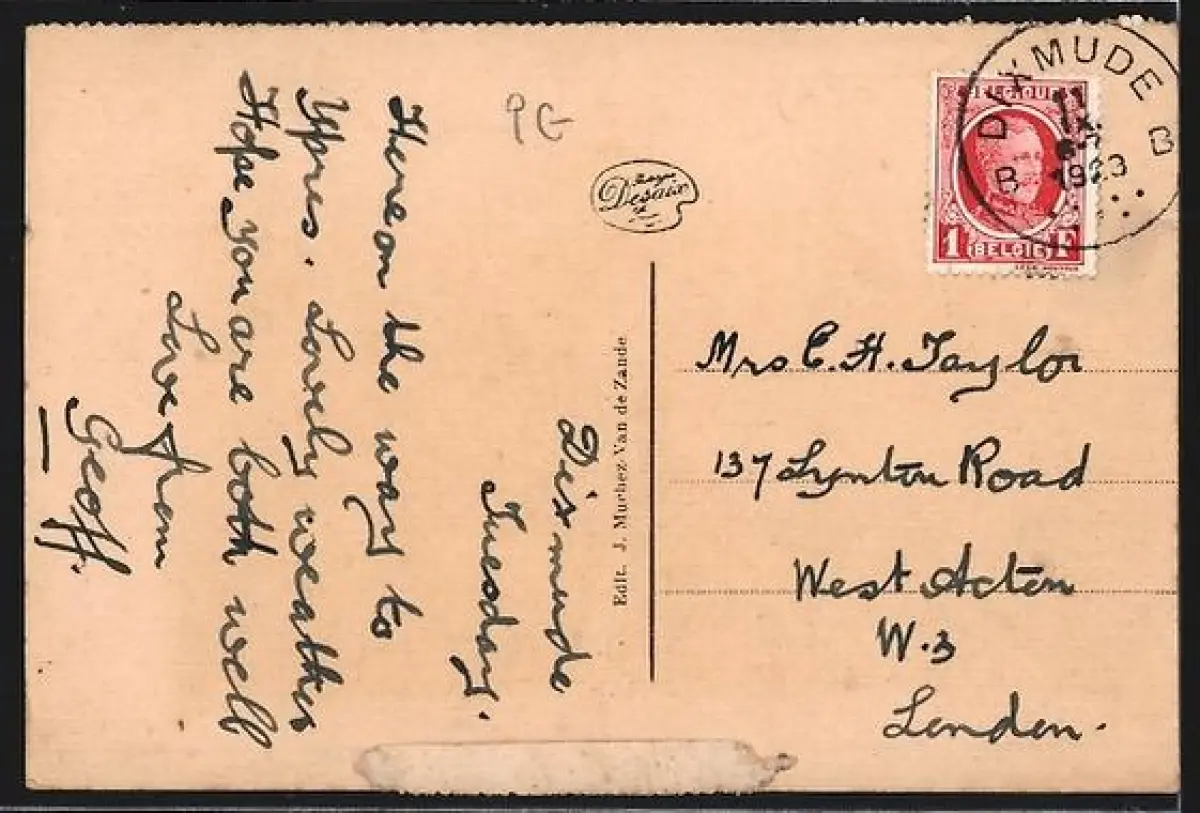 Dixmude
Tuesday.
Here on the way to
Ypres. Lovely weather
Hope you are both well
Love from
Geoff.
PG
Desaix
Edit. J. Muchez-Van de Zande
DIXMUDE
B B
1923
BELGIQUE
1 BELGIE F
Mrs C. H. Taylor
137 Lynton Road
West Acton
W.3
London.